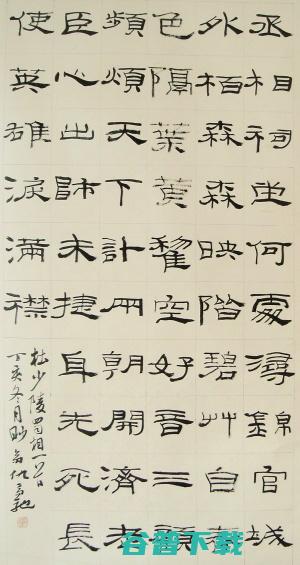 丞相祠堂何處尋錦官城
外栢森森映階碧艸自春
色隔葉黃鸝空好音三顧
頻煩天下計兩朝開濟老
臣心出師未捷身先死長
使英雄淚滿襟
杜少陵蜀相一首
丁亥冬月
谷普下载